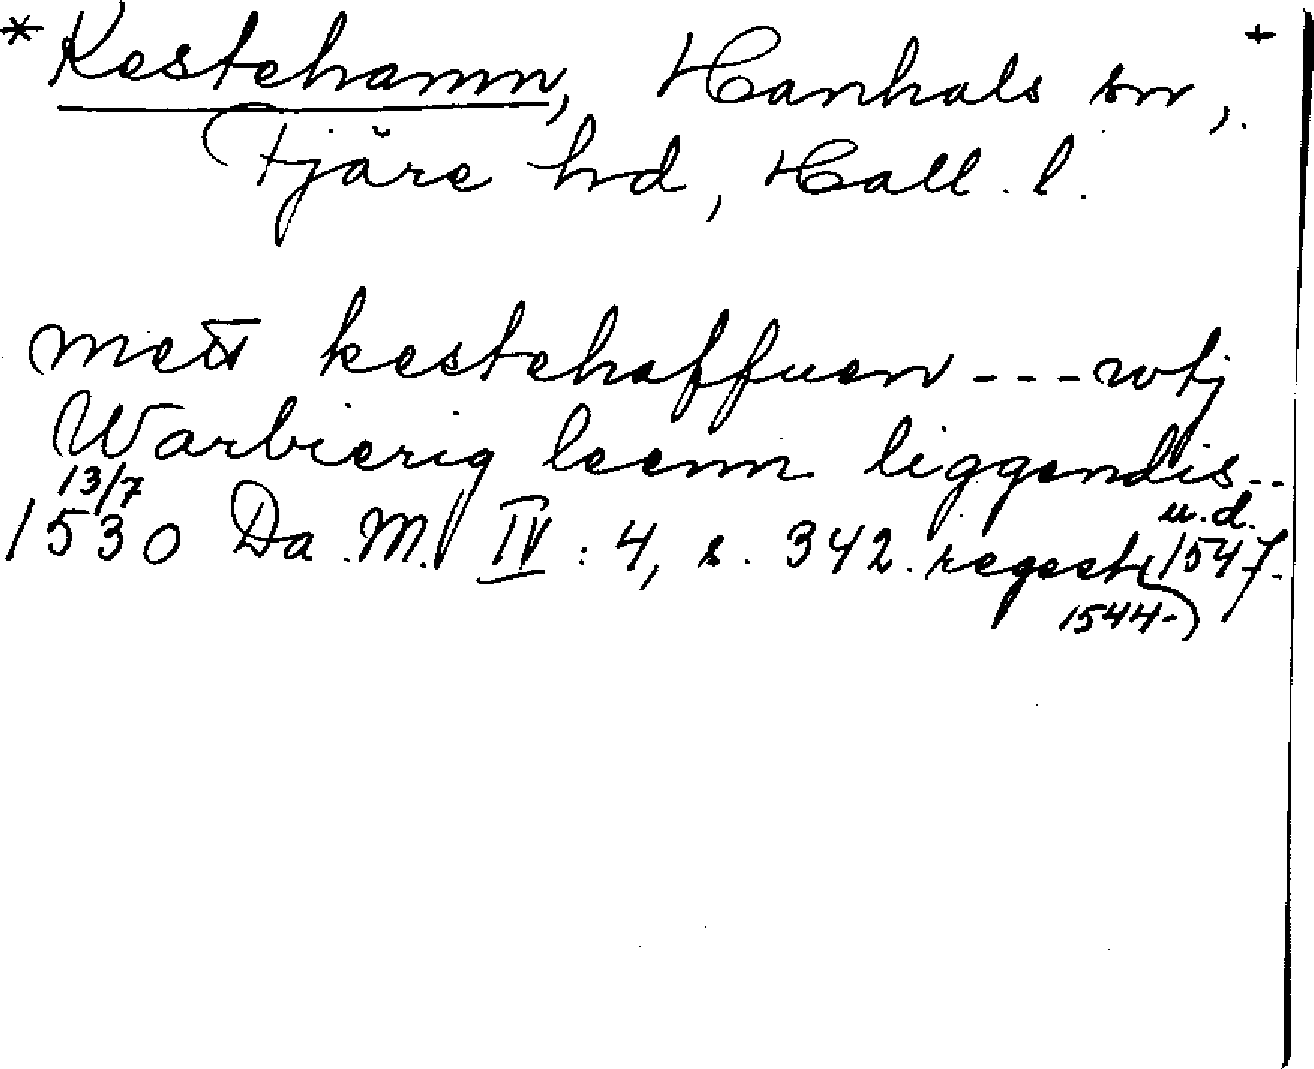 * Kestehamn, Hanhals sn, +
Fjäre hd, Hall. l.
mett kestehaffuen --- wtj
Warbierig leenn liggendis --
13/7 1530 Da. M. IV : 4, s. 342. regest u.d. 1547.
1544-